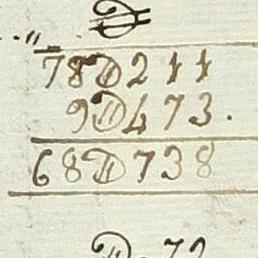 78D211
9D473.
68D738